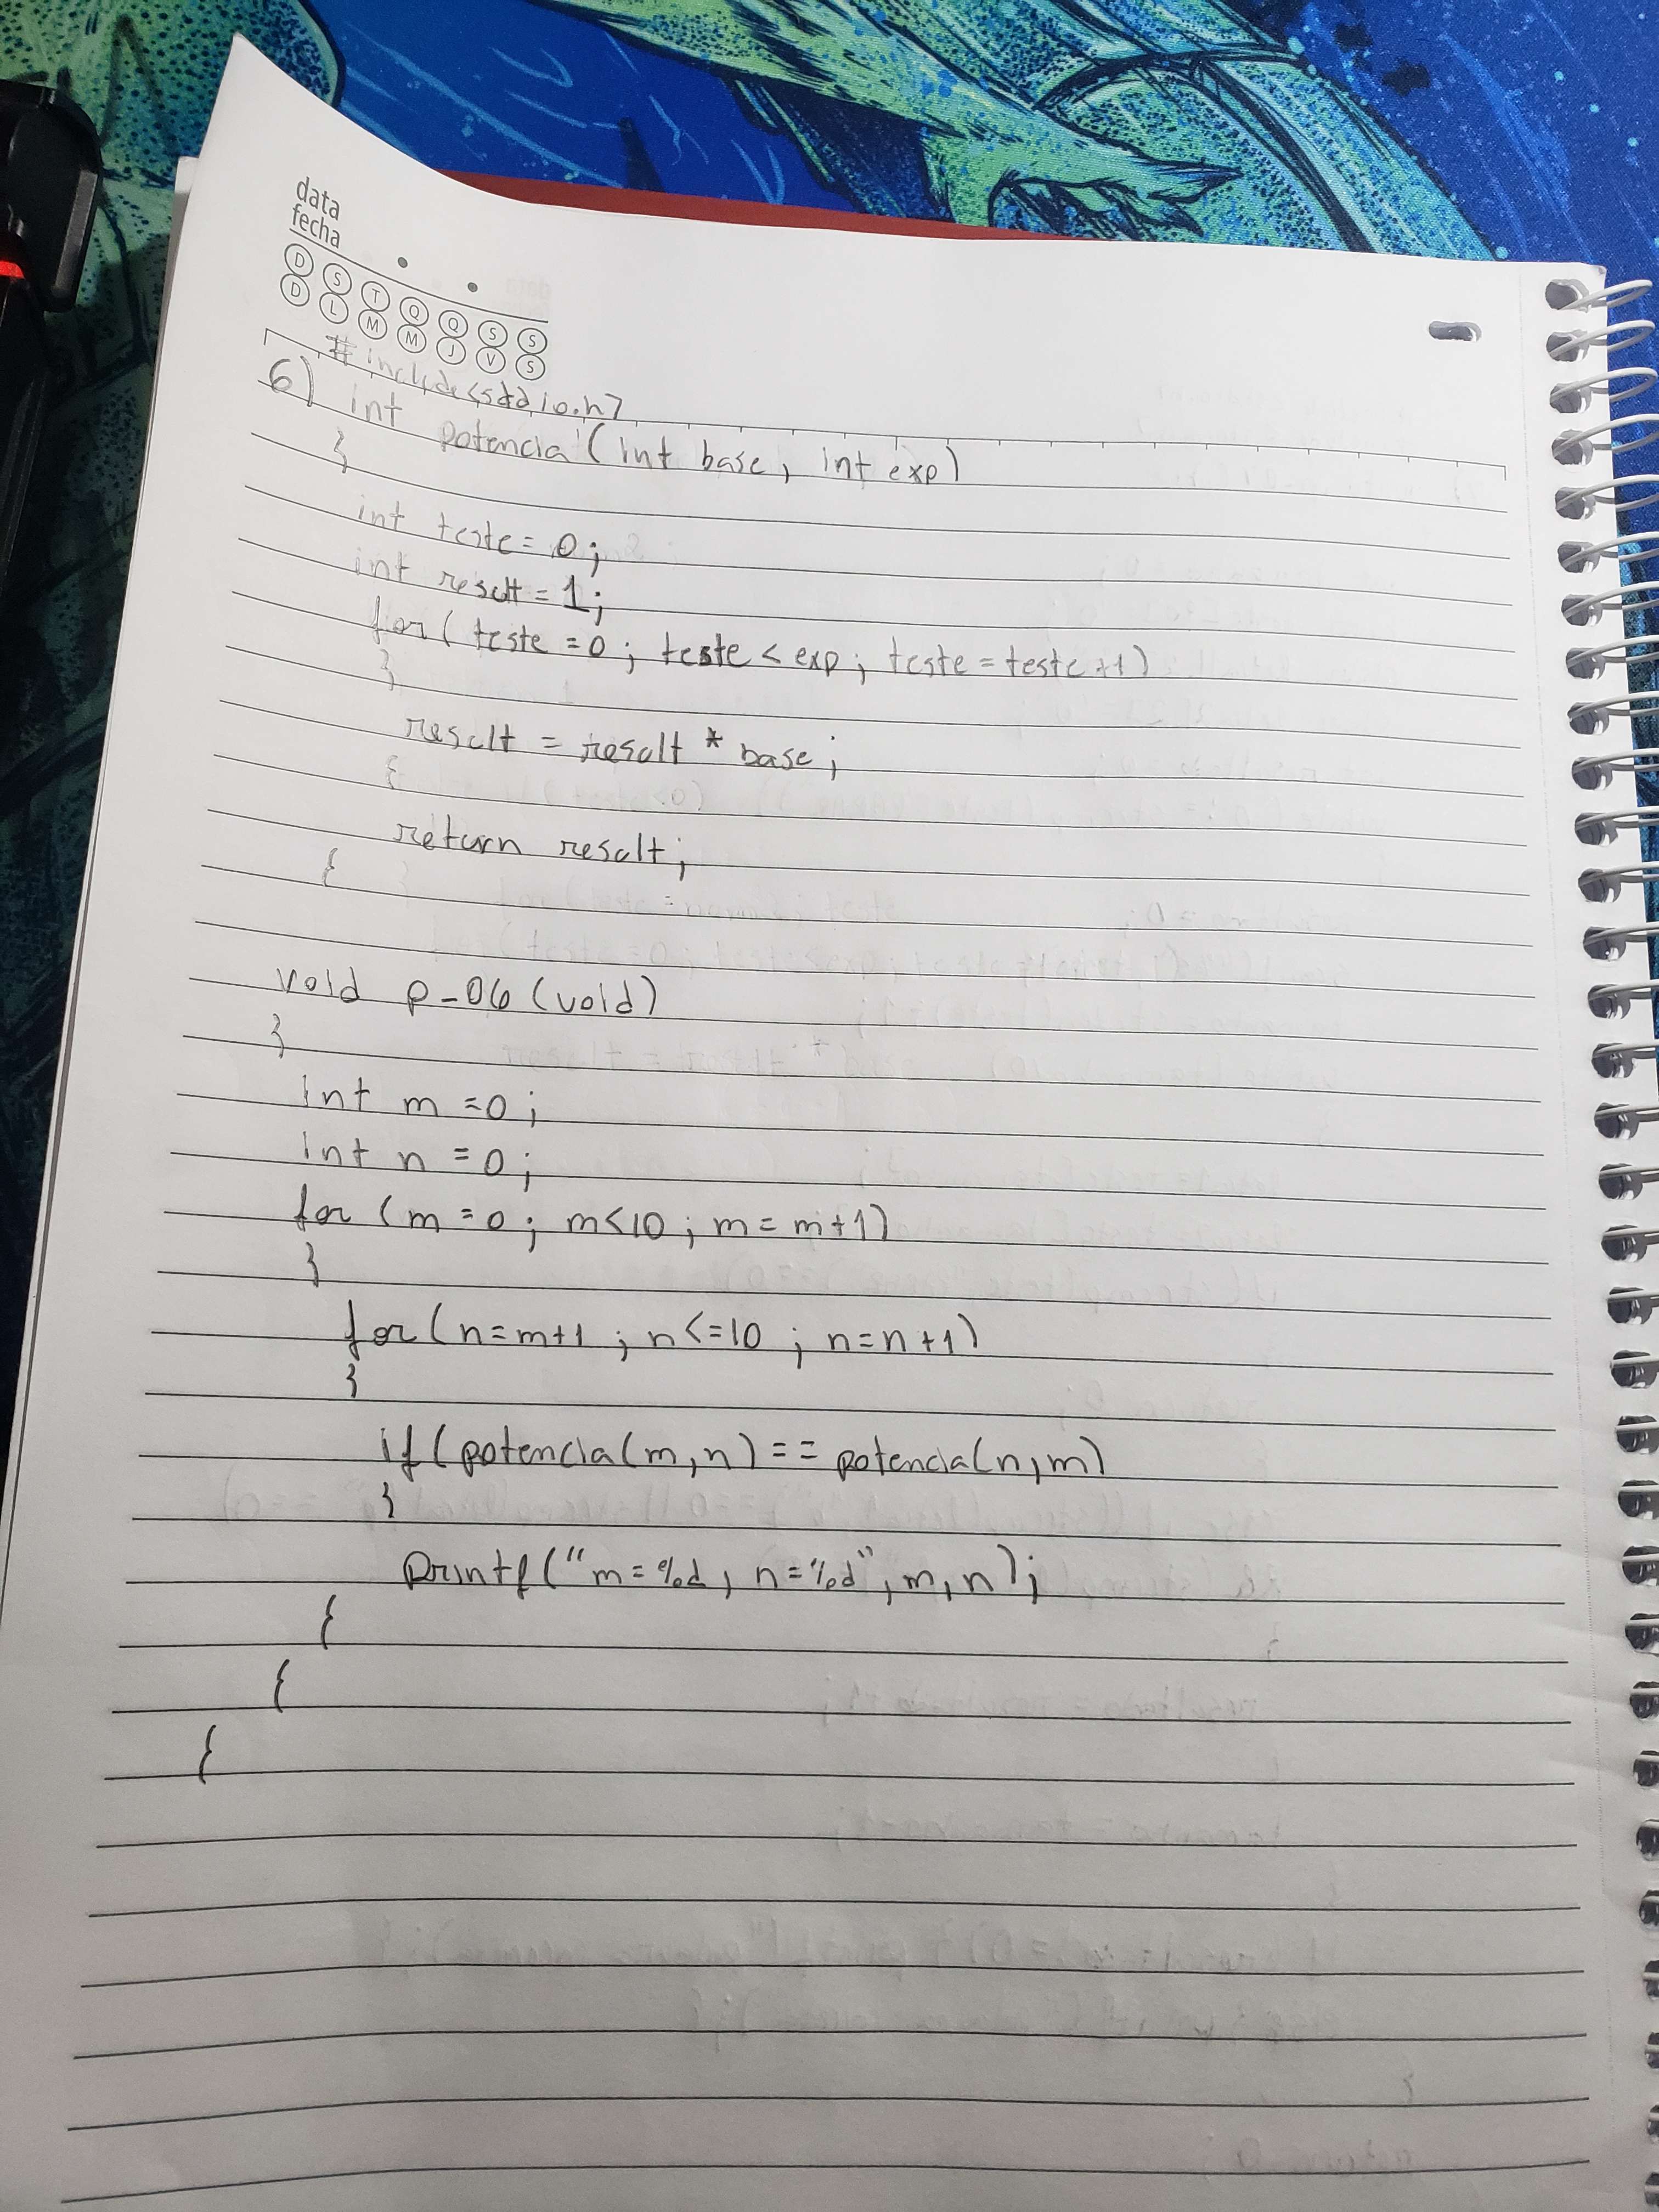 data
fecha
D S T Q Q S S
D L M M J V S
#include<stdio.h>
6) int potencia (int base, int exp)
}
int teste = 0;
int result = 1;
for( teste = 0; teste < exp; teste = teste +1)
}
result = result * base;
{
return result;
{
void p-06 (void)
}
int m =0;
int n = 0;
for (m = 0; m<10; m = m+1)
}
for (n=m+1; n<=10; n=n+1)
}
if(potencia(m,n) == potencia(n,m)
}
printf("m=%d, n=%d", m, n);
{
{
{